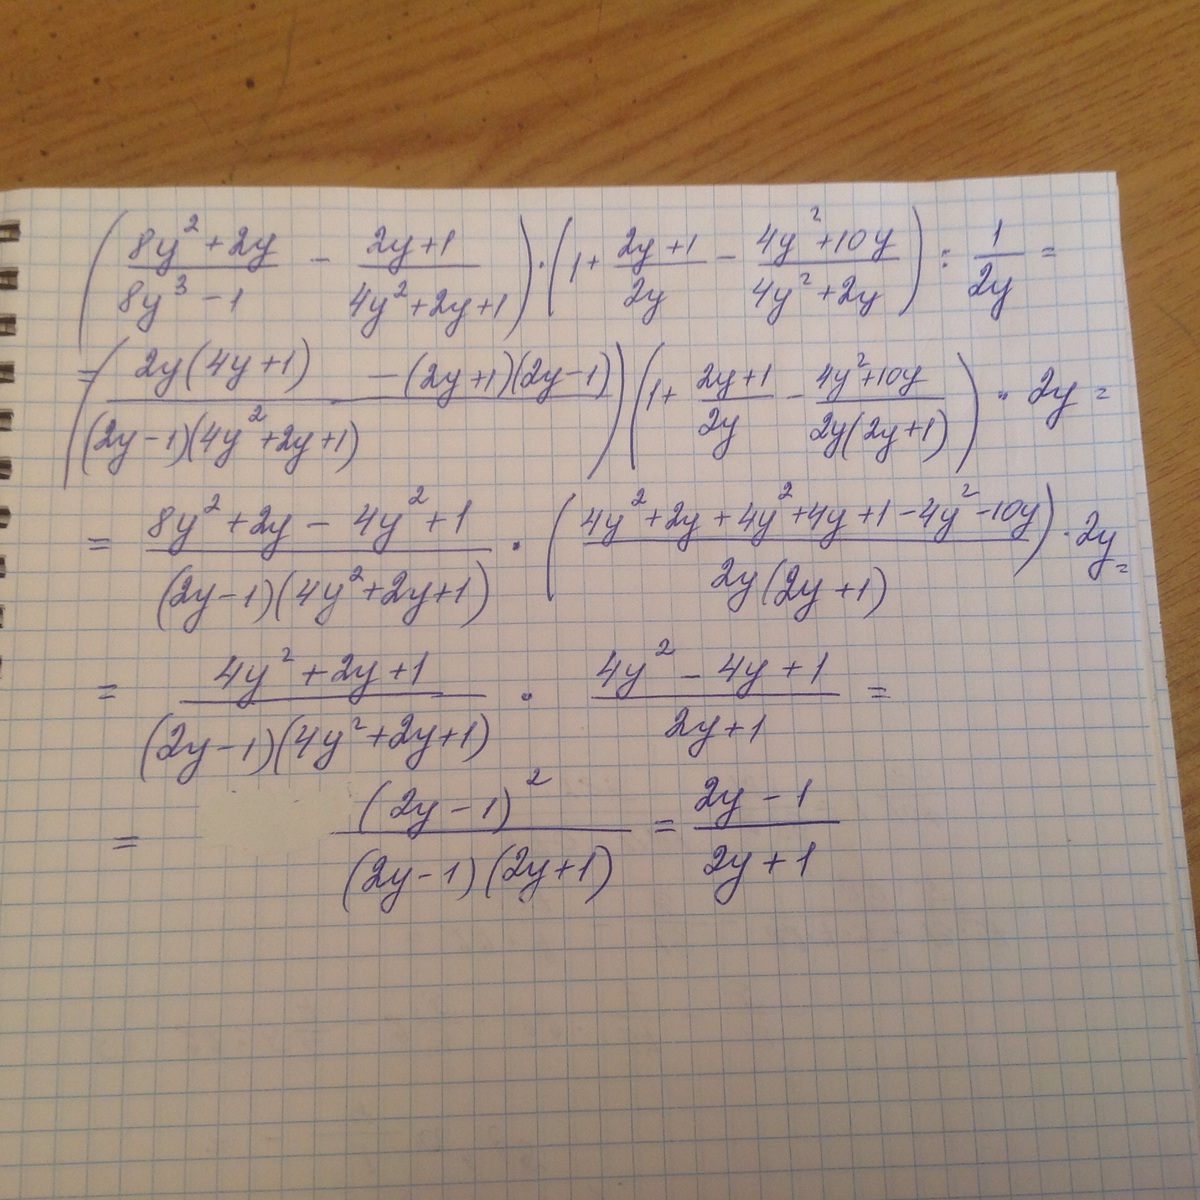 ((8y²+2y)/(8y³-1) - (2y+1)/(4y²+2y+1))·(1+(2y+1)/(2y) - (4y²+10y)/(4y²+2y)) : 1/(2y) =
=((2y(4y+1) -(2y+1)(2y-1))/((2y-1)(4y²+2y+1)))(1+(2y+1)/(2y) - (4y²+10y)/(2y(2y+1))) · 2y =
= (8y²+2y-4y²+1)/((2y-1)(4y²+2y+1)) · ((4y²+2y+4y²+4y+1-4y²-10y)/(2y(2y+1))) · 2y =
= (4y²+2y+1)/((2y-1)(4y²+2y+1)) · (4y²-4y+1)/(2y+1) =
= (2y-1)²/((2y-1)(2y+1)) = (2y-1)/(2y+1)